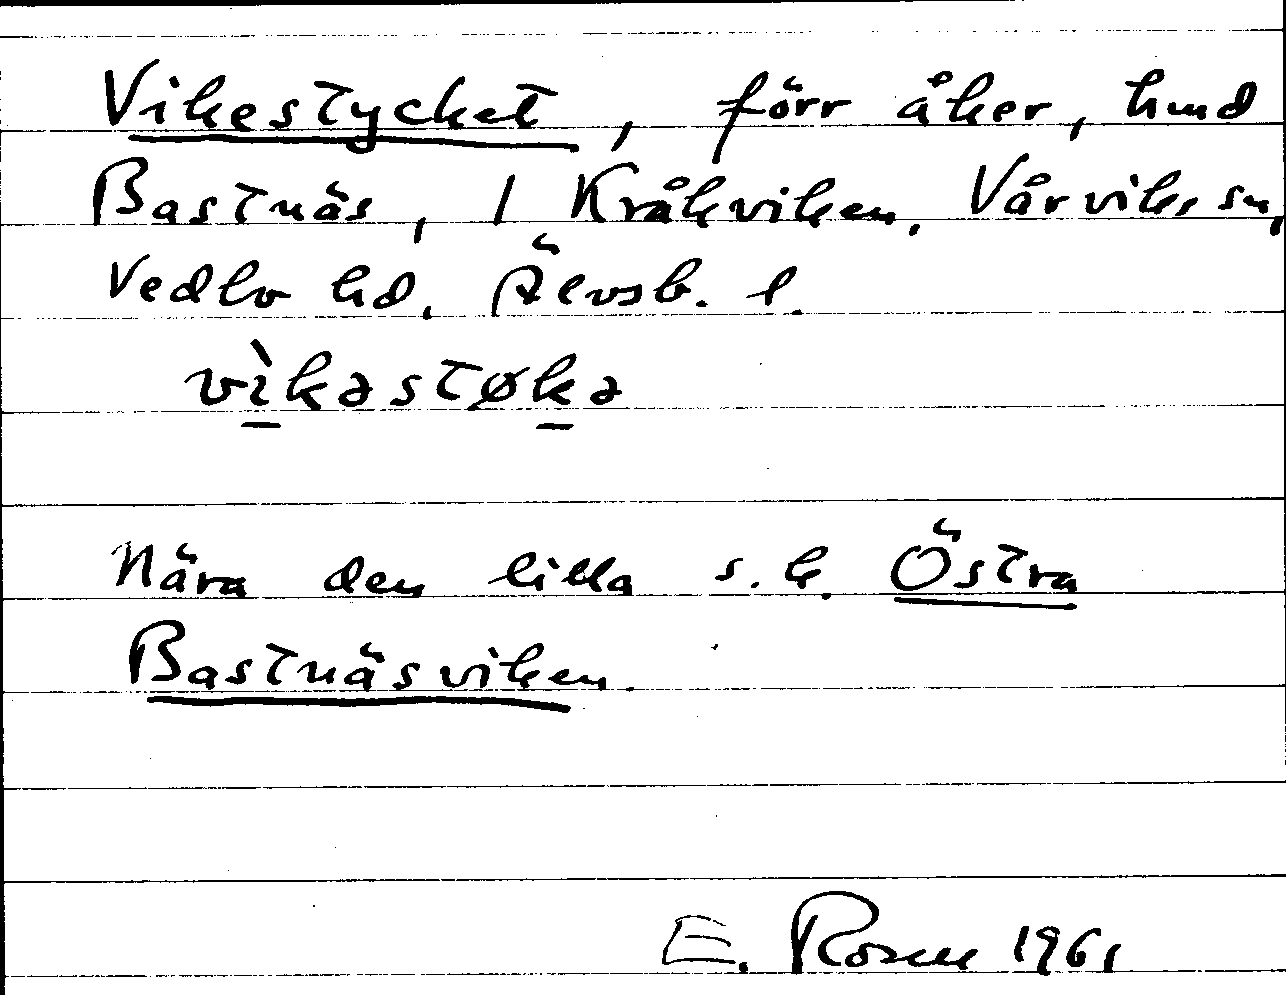 Vikestycket, förr åker, hmd
Bastnäs, 1 Kråkviken. Vårviks sn,
Vedbo hd. Älvsb. l.
vìkəstøkə
Nära den lilla s.k. Östra
Bastnäsviken.
E. Rosen 1961